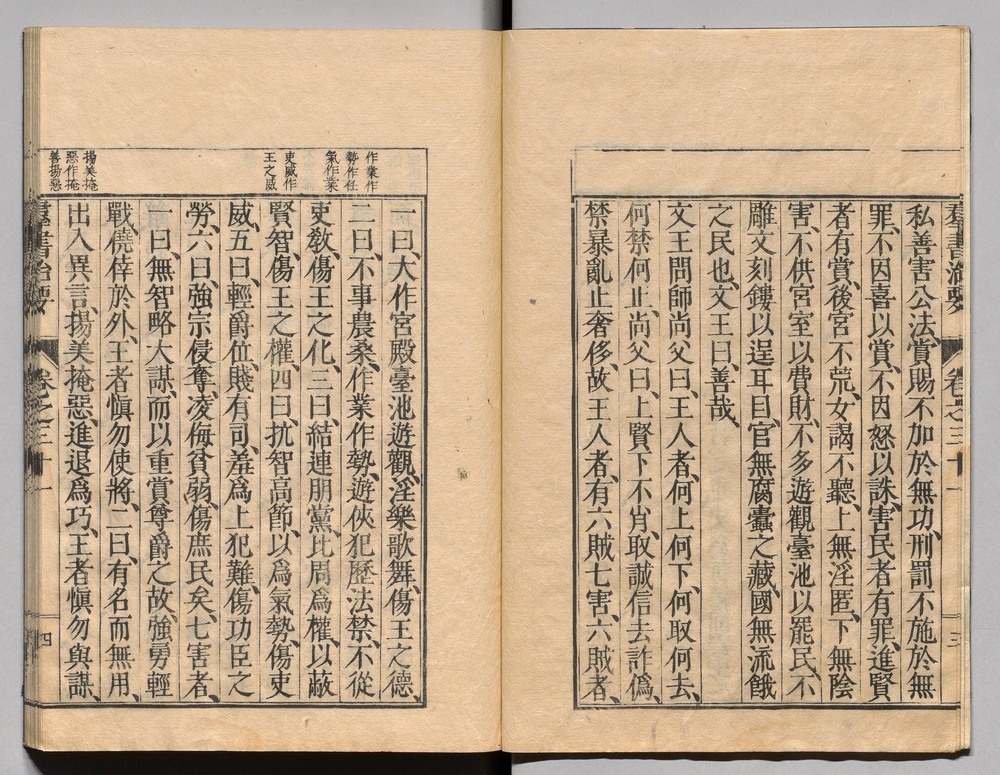 羣書治要 卷之三十一 三
私善害公法、賞賜不加於無功、刑罰不施於無
罪、不因喜以賞、不因怒以誅、害民者有罪、進賢
者有賞、後宮不荒、女謁不聽、上無淫匿、下無陰
害、不供宮室以費財、不多遊觀臺池以罷民、不
雕文刻鏤以逞耳目、官無腐蠹之藏、國無流餓
之民也、文王曰、善哉、
文王問師尚父曰、王人者、何上何下、何取何去、
何禁何止、尚父曰、上賢下不肖、取誠信去詐僞、
禁暴亂止奢侈、故王人者、有六賊七害、六賊者、
作業作
勢作任
氣作業
吏威作
王之威
揚美掩
惡作掩
善揚惡
一曰、大作宮殿臺池遊觀、淫樂歌舞、傷王之德、
二曰、不事農桑、作業作勢、遊俠犯歷法禁、不從
吏敎、傷王之化、三曰、結連朋黨、比周爲權、以蔽
賢智、傷王之權、四曰、抗智高節、以爲氣勢、傷吏
威、五曰、輕爵位、賤有司、羞爲上犯難、傷功臣之
勞、六曰、強宗侵奪、凌侮貧弱、傷庶民矣、七害者、
一曰、無智略大謀、而以重賞尊爵之故、強勇輕
戰、僥倖於外、王者愼勿使將、二曰、有名而無用、
出入異言、揚美掩惡、進退爲巧、王者愼勿與謀、
羣書治要 卷之三十一 四